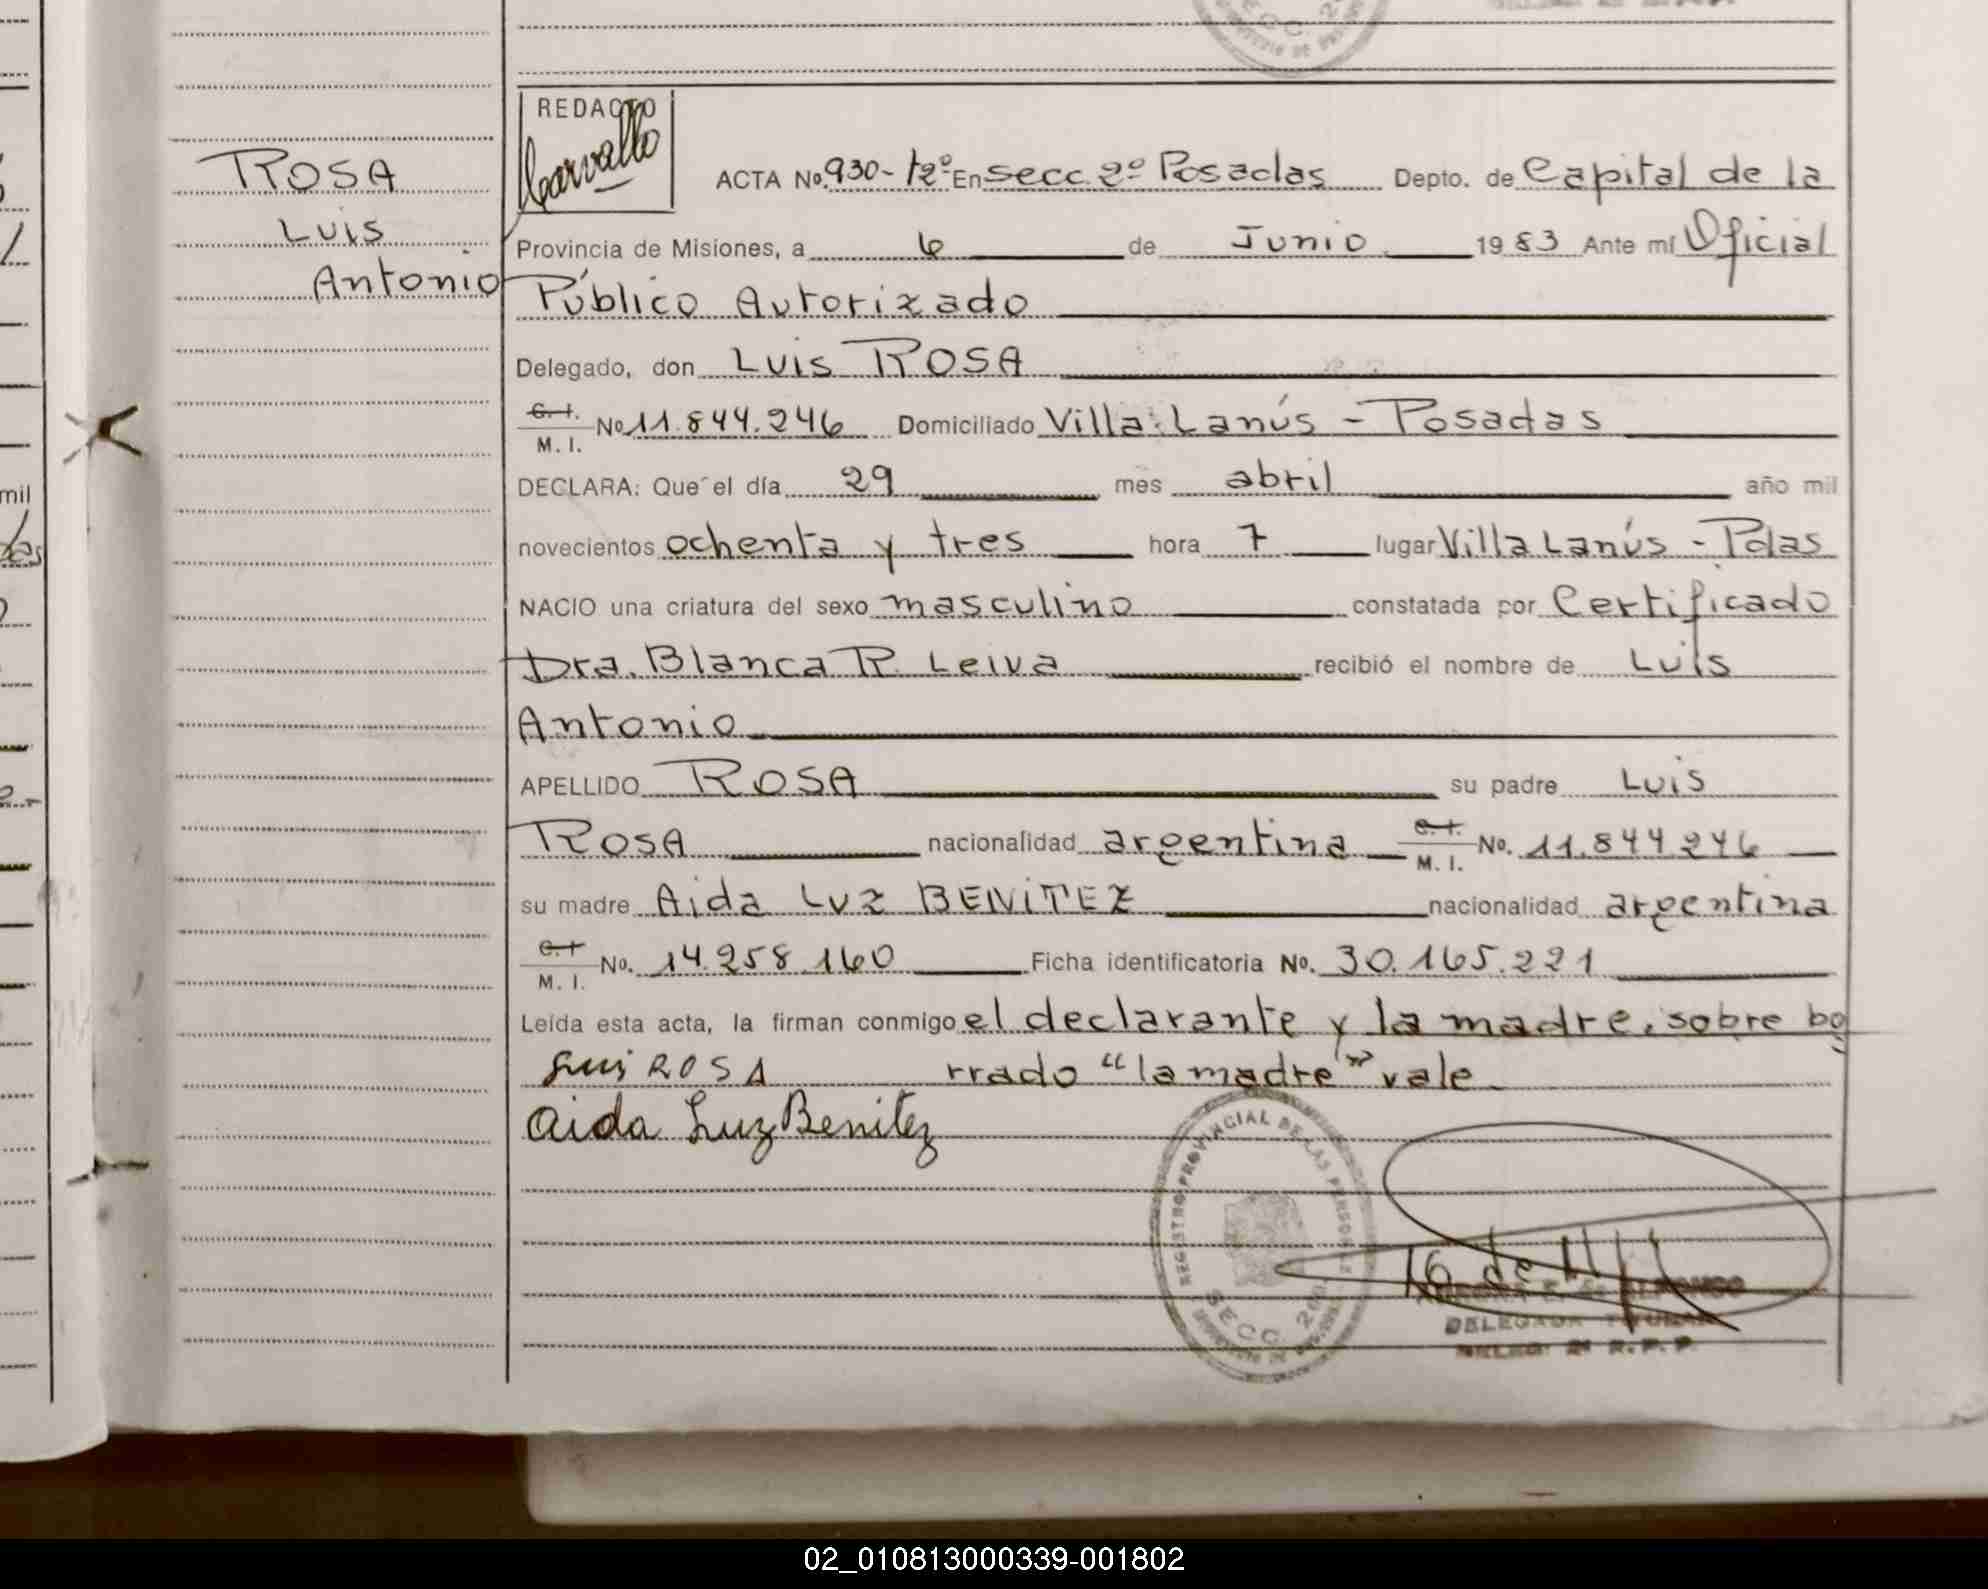 ROSA
Luis
Antonio
REDACTO
Carvallo
ACTA No. 930- T2º En secc. 2º Posadas Depto. de Capital de la
Provincia de Misiones, a 6 de Junio 19 83 Ante mí Oficial
Público Autorizado
Delegado, don Luis ROSA
C. I. M. I. No 11.844.246 Domiciliado Villa Lanús - Posadas
DECLARA: Que el día 29 mes abril año mil
novecientos ochenta y tres hora 7 lugar Villa Lanús - Pdas
NACIO una criatura del sexo masculino constatada por Certificado
Dra. Blanca R. Leiva recibió el nombre de Luis
Antonio
APELLIDO ROSA su padre Luis
ROSA nacionalidad argentina C. I. M. I. No. 11.844.246
su madre Aida Luz BENITEZ nacionalidad argentina
C. I. M. I. No. 14.258.160 Ficha identificatoria No. 30.165.221
Leída esta acta, la firman conmigo el declarante y la madre. sobre bo
Luis ROSA rrado "la madre" vale
Aida Luz Benitez
REGISTRO PROVINCIAL DE LAS PERSONAS
SECC. 2da.
DELEGADA TITULAR
DELEG. 2ª R.P.P.
mil
02_010813000339-001802